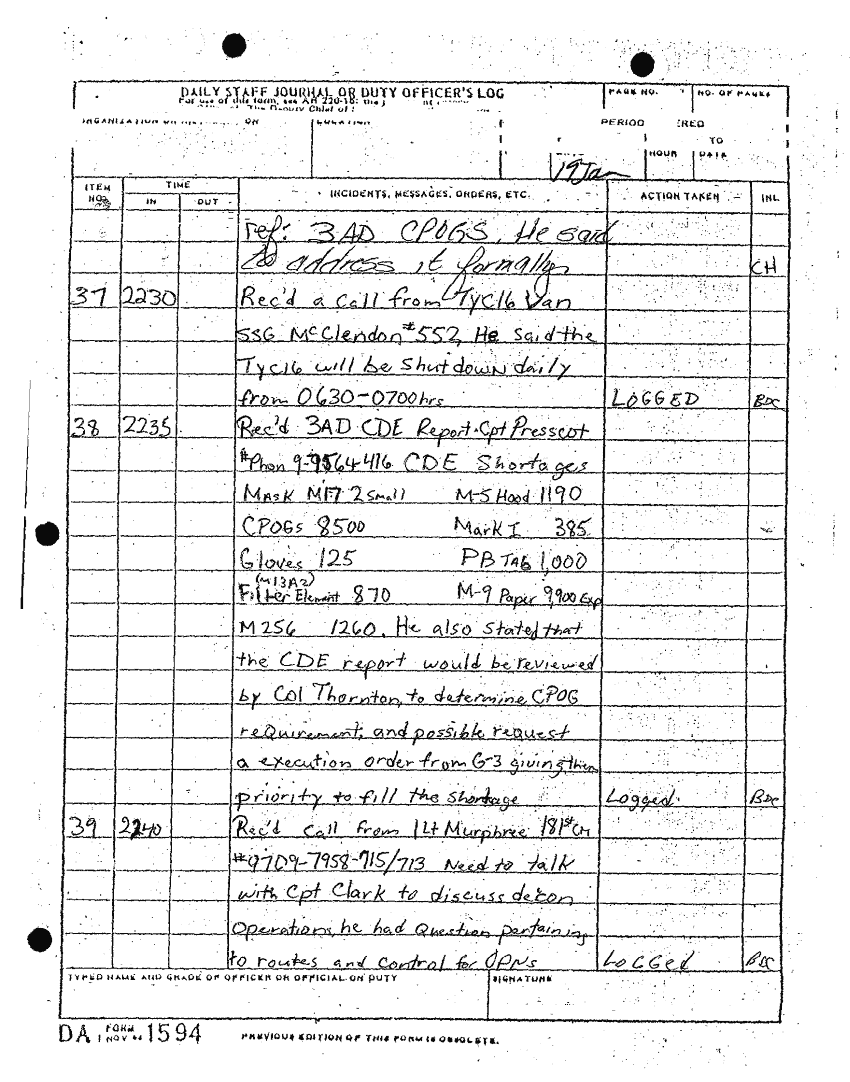 DAILY STAFF JOURNAL OR DUTY OFFICER'S LOG
For use of this form, see AR 220-15; the
PAGE NO.
NO. OF PAGES
PERIOD
TO
HOUR DATE
19 Jan
ITEM NO.
TIME
IN OUT
INCIDENTS, MESSAGES, ORDERS, ETC.
ACTION TAKEN
INL
ref: 3AD CPOGS. He said
to address it formally CH
37 2230 Rec'd a call from TYC16 Van
SSG McClendon #552, He said the
Tyc16 will be shutdown daily
from 0630-0700hrs LOGGED BDC
38 2235 Rec'd 3AD CDE Report. Cpt Presscot
#Phon 9-9564-416 CDE Shortages
MASK M17 2 Small M-5 Hood 1190
CPOGs 8500 Mark I 385
Gloves 125 PB TAB 1,000
(M13A2)
Filter Element 870 M-9 Paper 9,900 Exp
M256 1260. He also stated that
the CDE report would be reviewed
by Col Thornton, to determine CPOG
requirement, and possible request
a execution order from G-3 giving them
priority to fill the shortage Logged. BDC
39 2240 Rec'd call from 1Lt Murphree 181st CM
#9709-7958-715/713 Need to talk
with Cpt Clark to discuss decon
Operations, he had Question pertaining
to routes and control for OPNs LOGGed BDC
TYPED NAME AND GRADE OF OFFICER OR OFFICIAL ON DUTY
SIGNATURE
DA FORM 1594
1 NOV
PREVIOUS EDITION OF THIS FORM IS OBSOLETE.